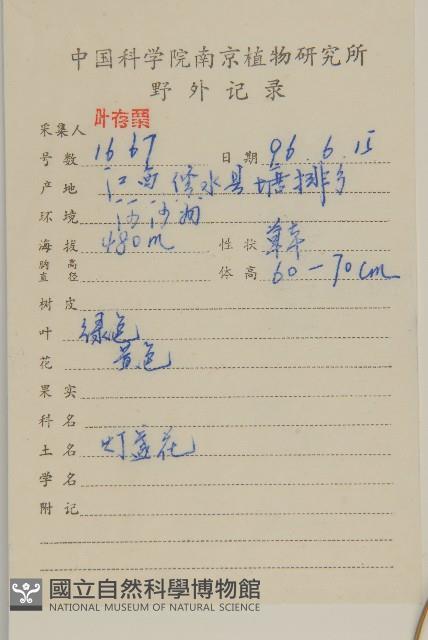 中国科学院南京植物研究所
野外记录
采集人 叶存粟
号数 1667 日期 96.6.15
产地 江西修水县塘排乡
环境
海拔 480m 性状 草本
胸高直径 体高 60—70cm
树皮
叶 绿色
花 黄色
果实
科名
土名 灯盏花
学名
附记
國立自然科學博物館
NATIONAL MUSEUM OF NATURAL SCIENCE